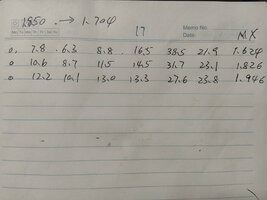 1850 → 1.704
17
Memo No.
Date
MX
0, 7.8 6.3 8.8 16.5 38.5 21.9 1.624
0 10.6 8.7 11.5 14.5 31.7 23.1 1.826
0 12.2 10.1 13.0 13.3 27.6 23.8 1.946